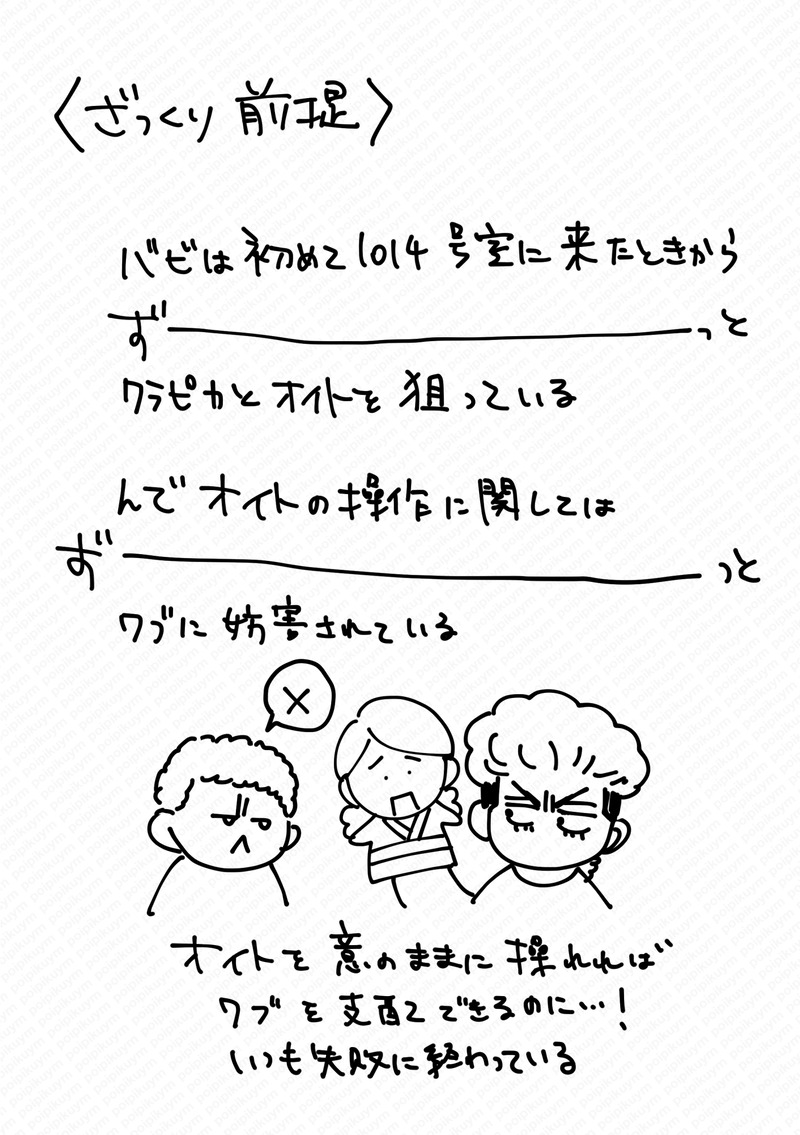 〈ざっくり 前提〉
バビは初めて1014号室に来たときから
ず――――っと
クラピカとオイトを狙っている
んでオイトの操作に関しては
ず――――っと
ワブに妨害されている
×
オイトを意のままに操れれば
ワブを支配できるのに…!
いつも失敗に終わっている